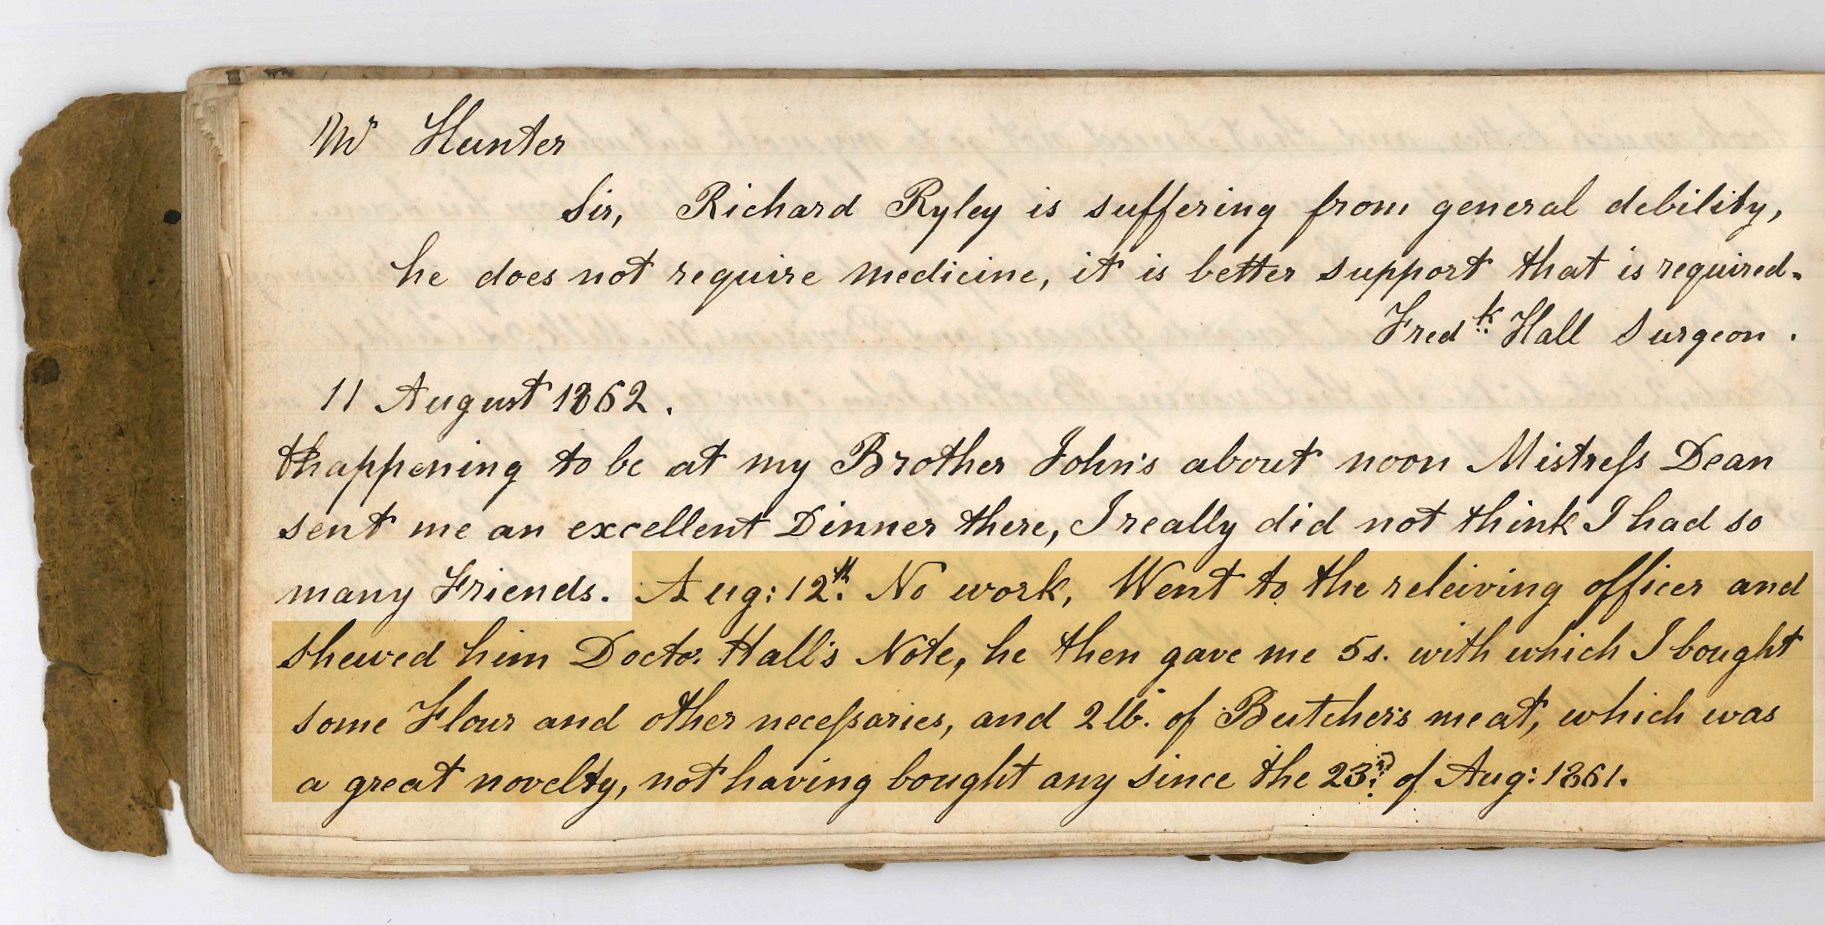 Mr Hunter
Sir, Richard Ryley is suffering from general debility,
he does not require medicine, it is better support that is required.
Fredk. Hall Surgeon.
11 August 1862.
happening to be at my Brother John's about noon Mistreſs Dean
sent me an excellent Dinner there, I really did not think I had so
many Friends. Aug: 12th. No work, Went to the releiving officer and
shewed him Doctor. Hall's Note, he then gave me 5s. with which I bought
some Flour and other neceſsaries, and 2 lb. of Butcher's meat, which was
a great novelty, not having bought any since the 23rd of Aug: 1861.